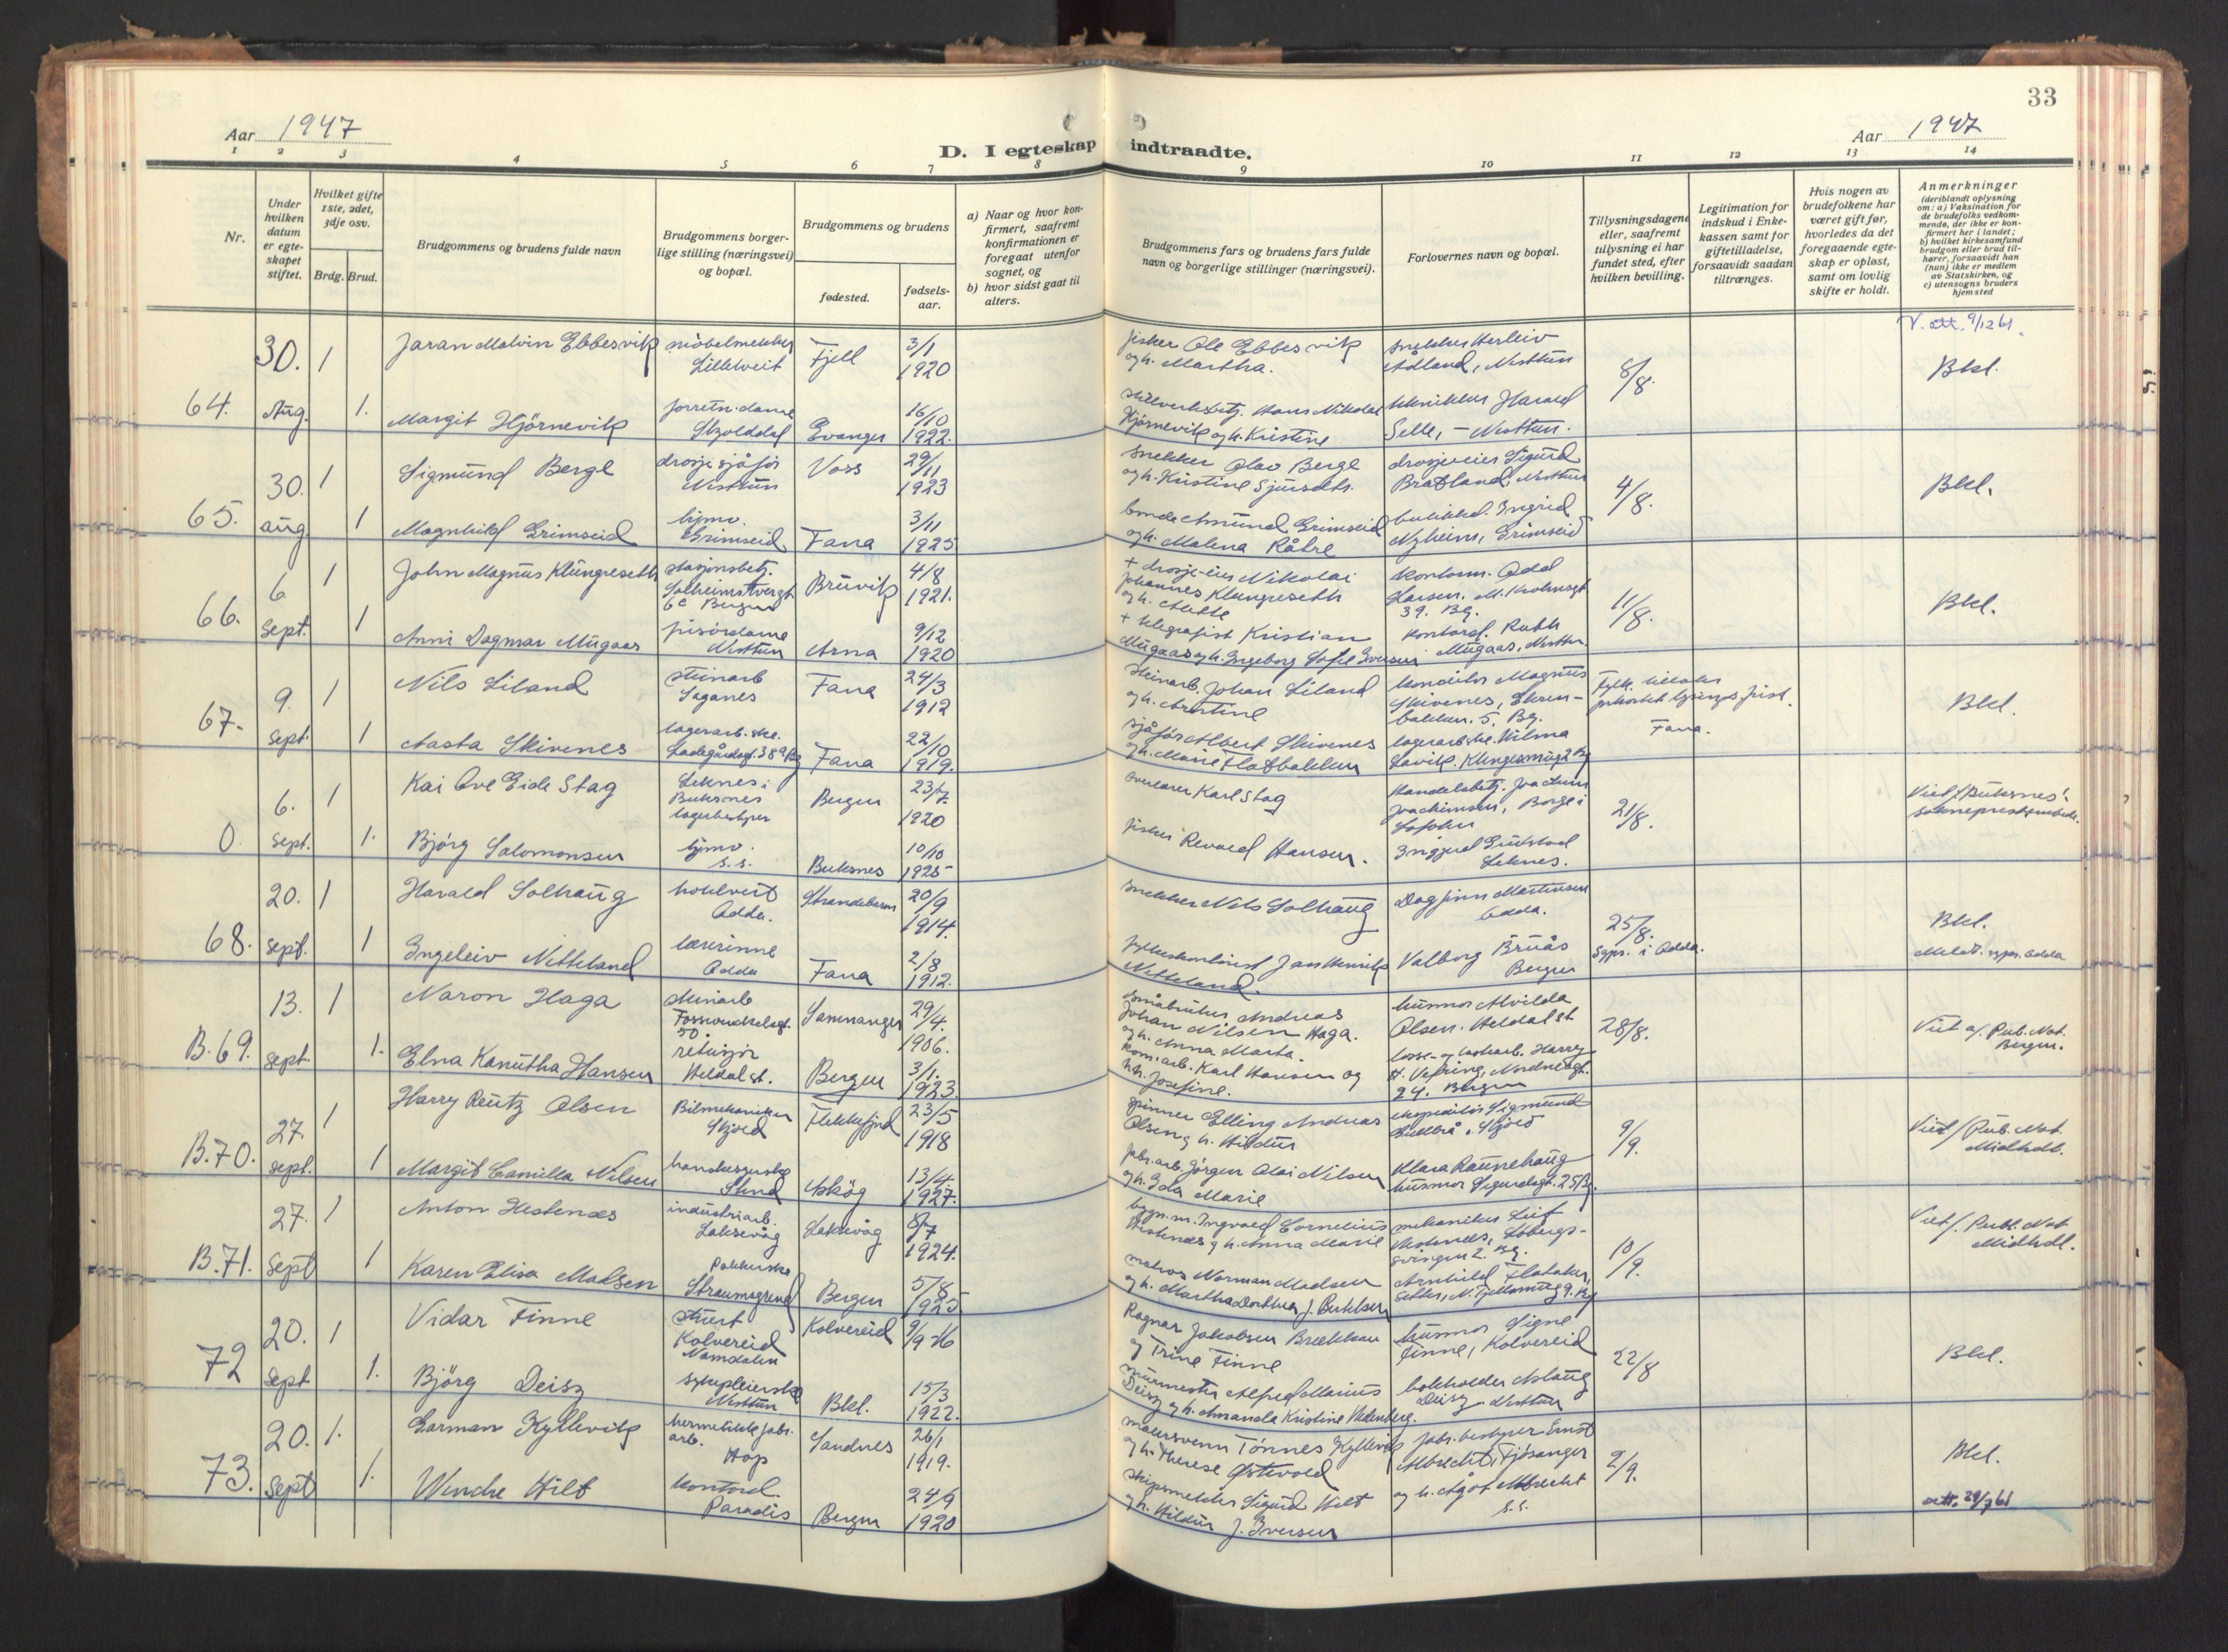 33
Aar 1947
Aar 1947
D. I egteskap indtraadte.
1 2 3 4 5 6 7 8 9 10 11 12 13 14
Nr.
Under hvilken datum er egteskapet stiftet.
Hvilket gifte 1ste, 2det, 3dje osv.
Brdg. Brud.
Brudgommens og brudens fulde navn
Brudgommens borgerlige stilling (næringsvei) og bopæl.
Brudgommens og brudens
fødested.
fødselsaar.
a) Naar og hvor konfirmert, saafremt konfirmationen er foregaat utenfor sognet, og
b) hvor sidst gaat til alters.
Brudgommens fars og brudens fars fulde navn og borgerlige stillinger (næringsvei).
Forlovernes navn og bopæl.
Tillysningsdagene eller, saafremt tillysning ei har fundet sted, efter hvilken bevilling.
Legitimation for indskud i Enkekassen samt for giftetilladelse, forsaavidt saadan tiltrænges.
Hvis nogen av brudefolkene har været gift før, hvorledes da det foregaaende egteskap er opløst, samt om lovlig skifte er holdt.
Anmerkninger
(deriblandt oplysning om: a) Vaksination for de brudefolks vedkommende, der ikke er konfirmert her i landet; b) hvilket kirkesamfund brudgom eller brud tilhører, forsaavidt han (hun) ikke er medlem av Statskirken, og c) utensogns bruders hjemsted
V. att. 9/12 61.
64. 30. Aug. 1 1.
Jaran Malvin Ebbesvik møbelsnekker Lilletveit Fjell 3/1 1920
fisker Ole Ebbesvik og h. Martha.
snekker Herleiv Ådland, Nesttun
8/8.
Bkl.
Margit Hjörnevik forretn.dame Skjolddal Evanger 16/10 1922.
Hans Nikolai Hjørnevik og h. Kristine
tekniker Harald Selle, - Nesttun.
65. 30. aug. 1 1
Sigmund Berge drosjesjåfør Nesttun Voss 29/11 1923
Snekker Olav Berge og h. Kristine Sjursdtr.
drosjeeier Sigurd Bratland, Nesttun
4/8.
Bkl.
Magnhild Grimseid hjmv. Grimseid Fana 3/11 1925
bonde Amund Grimseid og h. Malena Råtre
butikkd. Ingrid Nyheim, Grimseid
66. 6. Sept. 1 1
John Magnus Klungreseth stasjonsbetj. Solheimstverrgt 6c Bergen Bruvik 4/8 1921.
+ drosje-eier Nikolai Johannes Klungreseth og h. Mette
kontorm. Odd Larsen. M. Krohnsgt 39. Bg.
11/8.
Bkl.
Anni Dagmar Mugaas frisördame Nesttun Arna 9/12 1920
+ telegrafist Kristian Mugaas og h. Ingeborg Sofie Iversen
kontord. Ruth Mugaas, Nesttun.
67. 9. Sept. 1 1
Nils Liland steinarb Saganes Fana 24/3 1912
Steinarb. Johan Liland
Magnus Skivenes, 5. Bg.
lysings frist. Fana.
Bkl.
Aasta Skivenes lagerarb.ske. Ladegårdsgt. 38a Bg Fana 22/10 1919.
sjåfør Albert Skivenes og h. Marie Flatbakken
lagerarb.ske. Wilma Lavik.
0. 6. Sept. 1 1.
Kai Ove Eide Stag Leknes i Buksnes lagerbestyrer Bergen 23/7 1920
Overlærer Karl Stag
Handelsbetj. Joachim Joachimsen, Borge i Lofoten
21/8.
Viet / Buksnes sokneprestembede.
Björg Salomonsen hjmv. s.s. Buksnes 10/10 1925
fisker Revold Hansen.
Leknes.
68. 20. Sept. 1 1
Harald Solhaug hotelvert Odda. Strandebarm 20/9 1914.
snekker Nils Solhaug
Dagfinn Martinsen Odda.
25/8. Sgpr. i Odda.
Bkl.
Meldt. sgpr. Odda
Ingeleiv Netteland lærerinne Odda Fana 2/8 1912.
Jan Henrik Netteland.
Valborg Bruås Bergen
B. 69. 13. Sept. 1 1.
Naron Haga steinarb Fosswinckelsgt. 50. Samnanger 29/4. 1906.
småbruker Andreas Johan Nilsen Haga. og h. Anna Marta.
husmor Alvilda Olsen. Heldal st.
28/8.
Viet a/ Pub. Not. Bergen.
Elna Kanutha Hansen retusjør Heldal st. Bergen 3/1. 1923.
kom.arb. Karl Hansen og h. Josefine.
losse- og lastearb. Harry 24. Bergen
B. 70. 27. Sept. 1 1
Harry Reutz Olsen Bilmekaniker Skjold Flekkefjord 23/5 1918
spinner Elling Andreas Olsen og h. Hildur
ekspeditør Sigmund Skjold
9/9.
Viet / Pub. Not. Midhdl.
Margit Camilla Nilsen hanskesyerske Stend Askøy 13/4. 1927.
fabr.arb. Jörgen Olai Nilsen og h. Ida Marie
Klara Raunehaug husmor Sigurdsgt. 25 Bg.
B. 71. 27. Sept 1 1
Anton Hestenæs industriarb. Laksevåg Laksevåg 8/7 1924.
Ingvald Cornelius Hestenæs og h. Anna Marie
mekaniker Leif 2. Bg.
10/9.
Viet /. Publ. Not. Midhdl.
Karen Elisa Madsen Pakkerske Straumsgrend Bergen 5/8 1925
matros Norman Madsen og h. Martha Dorthea J. Bertelsen
Arnhild Flataker,
72 20. Sept 1 1.
Vidar Finne stuert Kolvereid Namdalen Kolvereid 9/9 16
Ragnar Jakobsen Brekkan og Trine Finne
husmor Signe Finne, Kolvereid
22/8
Bkl.
Björg Deisz sykepleierske Nesttun Bkl. 15/3 1922.
murmester Alfred Marius Deisz og h. Amanda Kristine Vedenberg.
bokholder Aslaug Deisz. Nesttun
73. 20. Sept 1. 1.
Garman Kyllevik hermetikkfabr. arb. Hop Sandnes 26/1 1919.
Tönnes Kyllevik og h. Therese Østvold
fabr. bestyrer Ernst Albrecht, Fjösanger
2/9.
Bkl.
Wenche Hilt kontord. Paradis Bergen 24/9 1920
skipsmekler Sigurd Hilt og h. Hildur J. Iversen
og h. Ågot Albrecht s.s.
att. 29/7 61